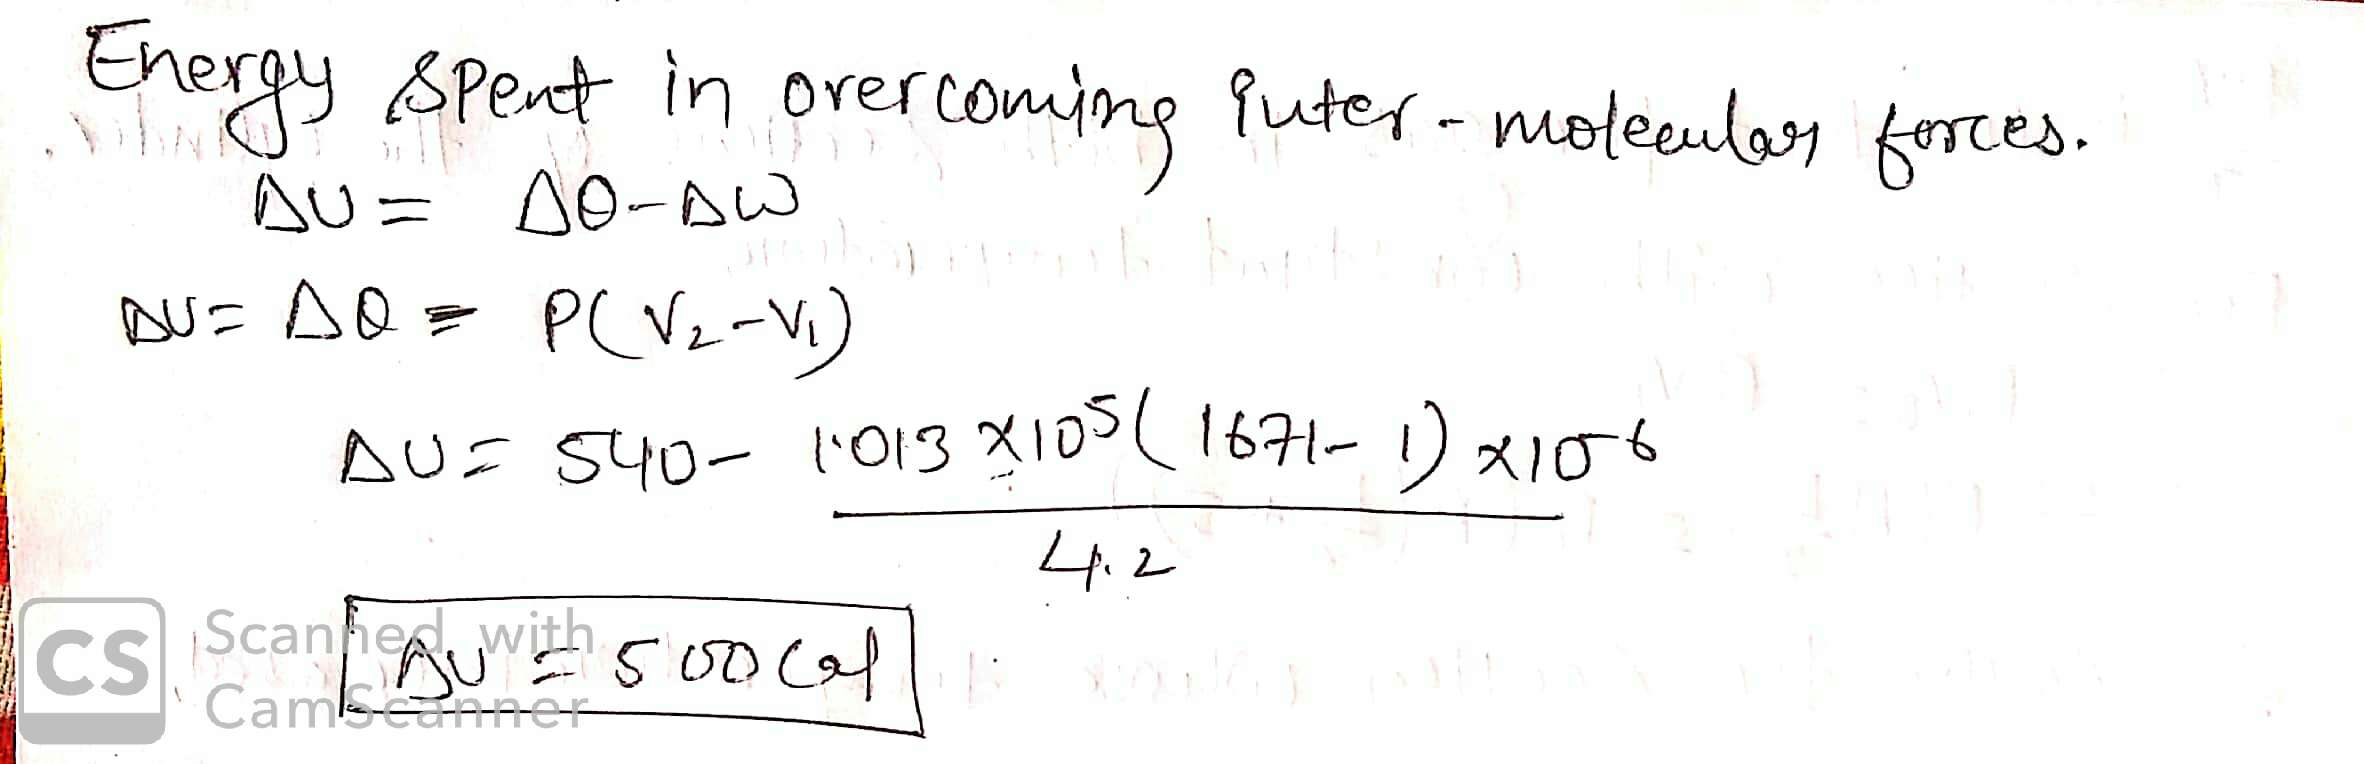 Energy spent in overcoming inter-molecular forces.
ΔU = ΔQ-ΔW
ΔU= ΔQ = P(V₂-V₁)
ΔU= 540- 1.013 x10⁵( 1671- 1) x10⁻⁶
4.2
ΔU = 500 Cal
CS Scanned with
CamScanner